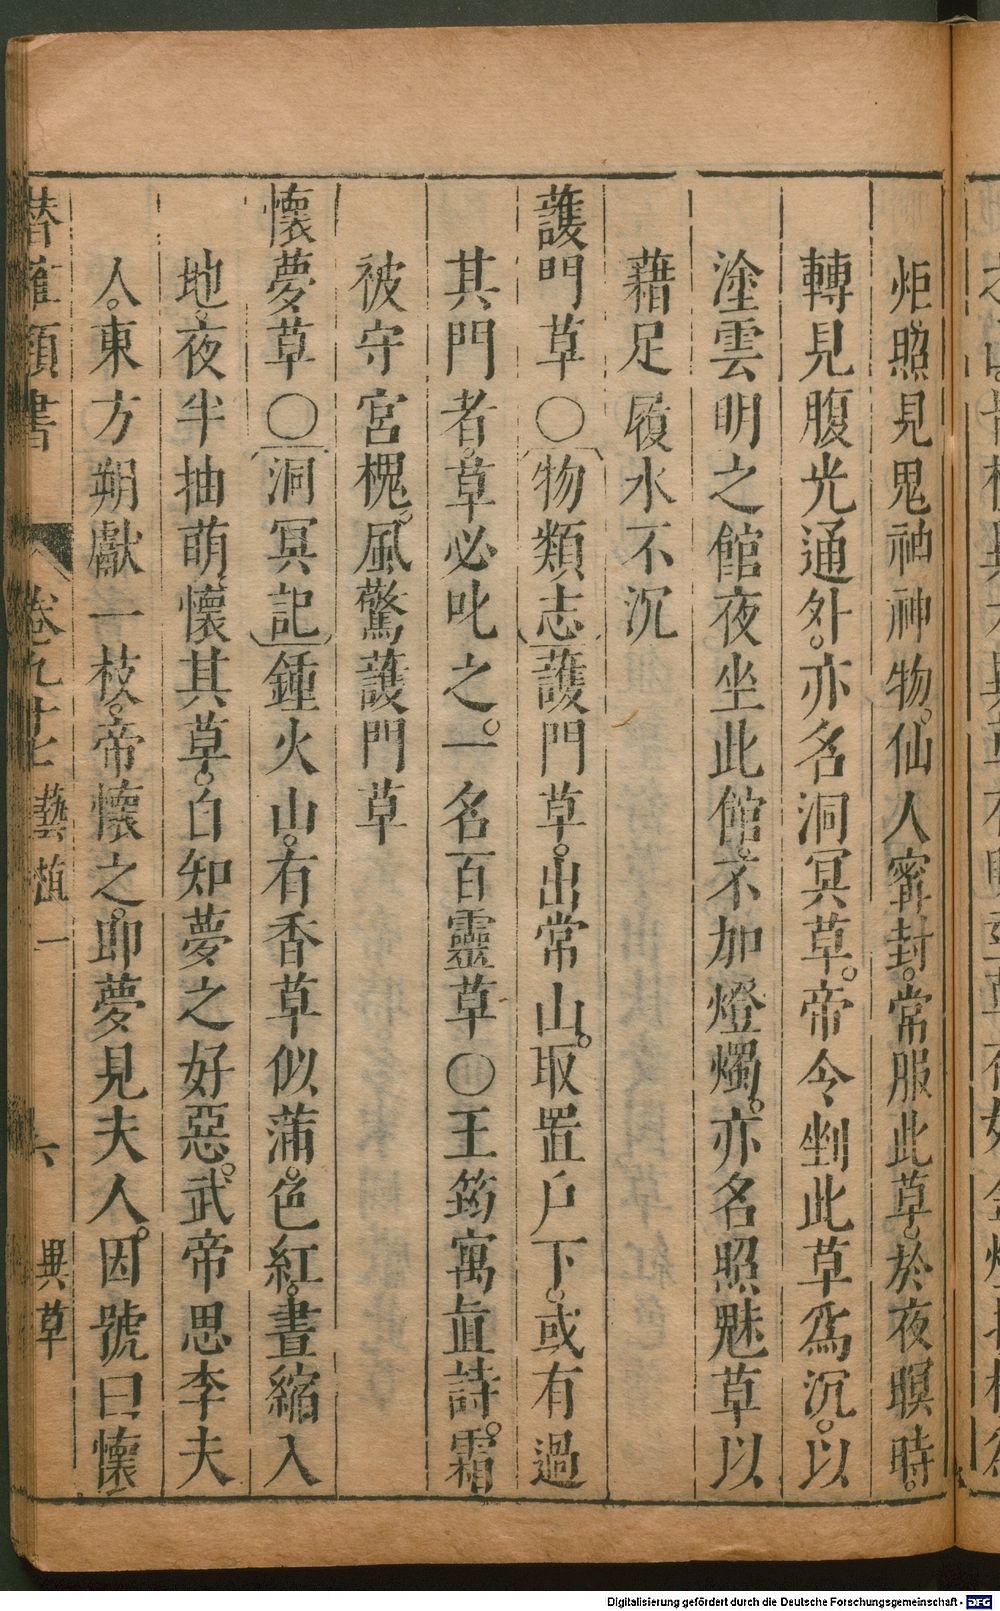 炬照見鬼神神物。仙人寗封。常服此草。於夜暝時。
轉見腹光通外。亦名洞冥草。帝令剉此草爲沉。以
塗雲明之館夜坐此館。不加燈燭。亦名照魅草以
藉足履水不沉
護門草○物類志護門草。出常山。取置戶下。或有過
其門者。草必叱之。一名百靈草○王筠寓直詩。霜
被守宮槐。風驚護門草
懷夢草○洞冥記鍾火山。有香草似蒲。色紅。晝縮入
地。夜半抽萌。懷其草。自知夢之好惡。武帝思李夫
人。東方朔獻一枝。帝懷之。卽夢見夫人。因號曰懷
潛確類書 卷九十七 藝植一 六 異草
Digitalisierung gefördert durch die Deutsche Forschungsgemeinschaft - DFG